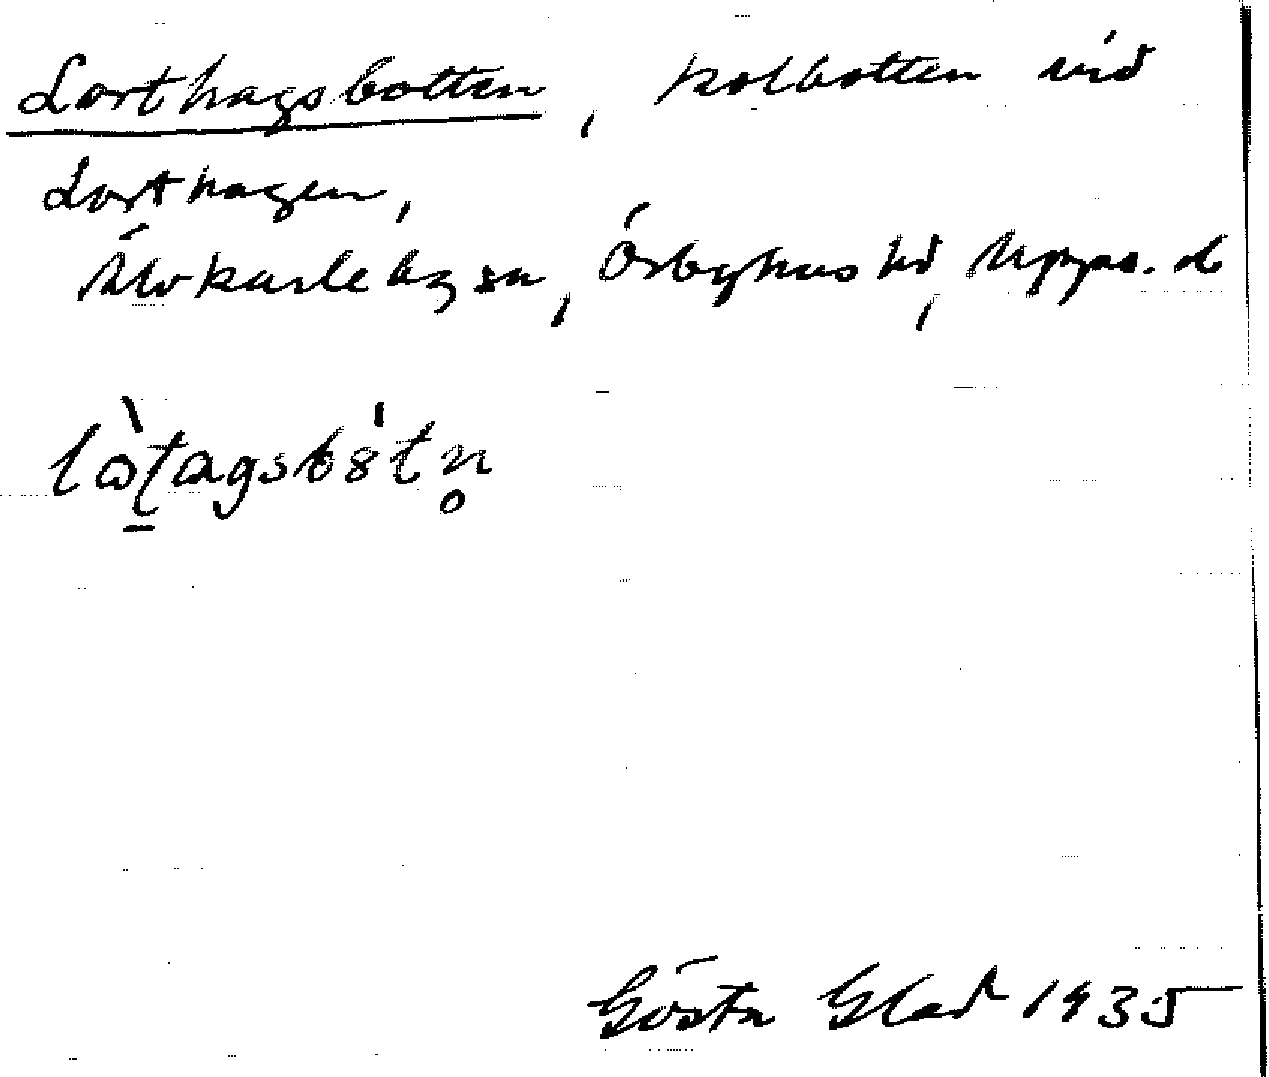 Lorthagsbotten, kolbotten vid
Lorthagen,
Älvkarleby sn, Örbyhus hd, Upps. l.
Gösta Glad 1935